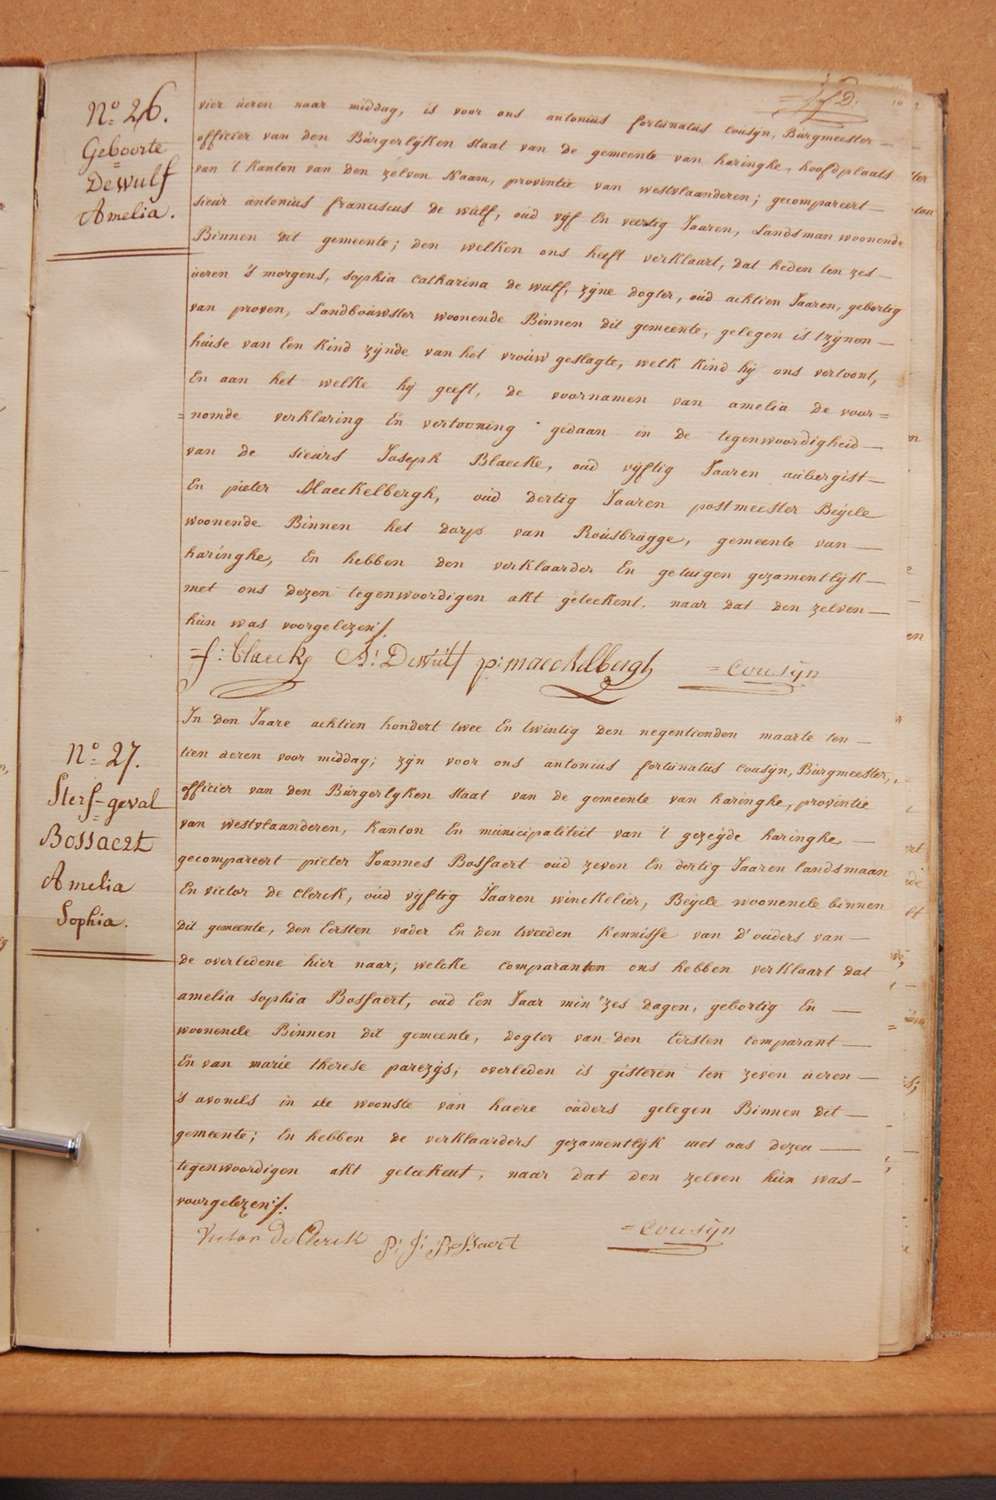 N.º 26.
Geboorte
Dewulf
Amelia.
vier ueren naar middag, is voor ons antonius fortunatus cousyn, Burgmeester —
officier van den Burgerlyken staat van de gemeente van haringhe, hoofdplaats
van 't kanton van den zelven Naam, provintie van westvlaanderen; gecompareert —
sieur antonius franciscus de wulf, oud vyf En veertig Jaaren, Landsman woonende
Binnen dit gemeente; den welken ons heeft verklaart, dat heden ten zes —
ueren 's morgens, sophia catharina de wulf, zyne dogter, oud achtien Jaaren, gebortig
van proven, Landbouwster woonende Binnen dit gemeente, gelegen is tzynen —
huise van Een kind zynde van het vrouw geslagte, welk kind hy ons vertoont,
En aan het welke hy geeft, de voornamen van amelia de voor=
=nomde verklaring En vertooning gedaan in de tegenwoordigheid —
van de sieurs Joseph Blaecke, oud vyftig Jaaren aubergist —
En pieter Maeckelbergh, oud dertig Jaaren postmeester Beyele
woonende Binnen het dorp van Rousbrugge, gemeente van —
haringhe, En hebben den verklaarder En getuigen gezamentlyk —
met ons dezen tegenwoordigen akt geteekent. naar dat den zelven —
hun was voorgelezen ./.
=J: Blaecke A: DeWulf p: maeckelbergh =Cousyn
N.º 27.
Sterf-geval
Bossaert
Amelia
Sophia.
In den Jaare achtien hondert twee En twintig den negentienden maarte ten —
tien ueren voor middag; zyn voor ons antonius fortunatus cousyn, Burgmeester,
officier van den Burgerlyken staat van de gemeente van haringhe, provintie
van westvlaanderen, Kanton En municipaliteit van 't gezeyde haringhe —
gecompareert pieter Joannes Bossaert oud zeven En dertig Jaaren landsmaan
En victor de Clerck, oud vyftig Jaaren winckelier, Beyele woonende binnen
dit gemeente, den Eersten vader En den tweeden kennisse van d'ouders van —
de overledene hier naar; welcke comparanten ons hebben verklaart dat
amelia sophia Bossaert, oud Een Jaar min zes dagen, gebortig En —
woonende Binnen dit gemeente, dogter van den Eersten comparant —
En van marie therese parezys; overleden is gisteren ten zeven ueren —
's avonds in de woonste van haere ouders gelegen Binnen dit —
gemeente; En hebben de verklaarders gezamentlyk met ons dezen —
tegenwoordigen akt geteekent, naar dat den zelven hun was —
voorgelezen ./.
Victor De Clerck p: J: Bossaert =Cousyn